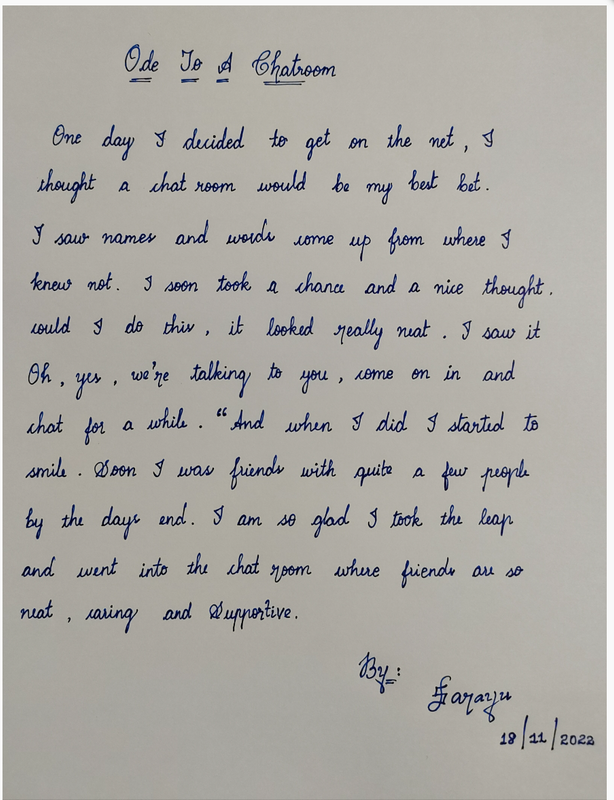 Ode To A Chatroom
One day I decided to get on the net, I
thought a chat room would be my best bet.
I saw names and words come up from where I
knew not. I soon took a chance and a nice thought.
could I do this, it looked really neat. I saw it
Oh, yes, we're talking to you, come on in and
chat for a while. "And when I did I started to
smile. Soon I was friends with quite a few people
by the days end. I am so glad I took the leap
and went into the chat room where friends are so
neat, caring and Supportive.
By:
Sarayu
18/11/2022